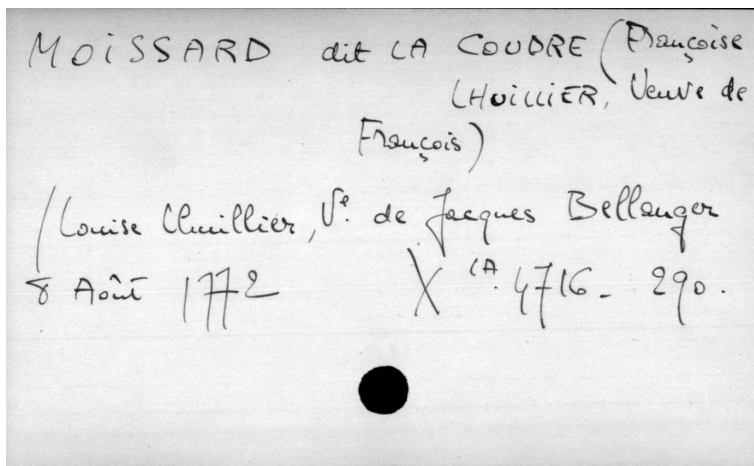 MOISSARD dit LA COUDRE (Françoise
LHUILLIER, Veuve de
François)
/ Louise Lhuillier, Ve. de Jacques Bellanger
8 Août 1772 X 1A. 4716 - 290.